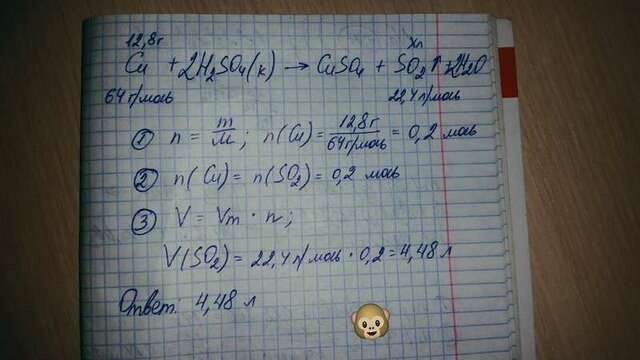 12,8г Хл
Cu + 2H₂SO₄(к) → CuSO₄ + SO₂↑ + 2H₂O
64 г/моль 22,4 л/моль
① n = m/M; n(Cu) = 12,8г/64г/моль = 0,2 моль
② n(Cu) = n(SO₂) = 0,2 моль
③ V = Vm · n;
V(SO₂) = 22,4 л/моль · 0,2 = 4,48 л
Ответ: 4,48 л